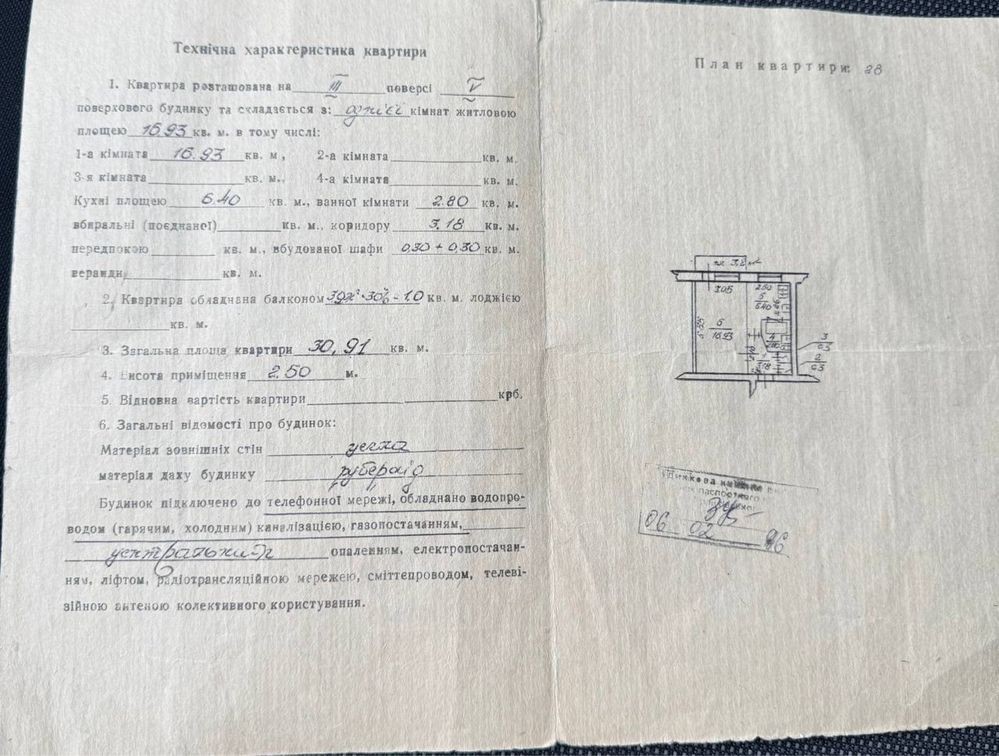 Технічна характеристика квартири
1. Квартира розташована на III поверсі V
поверхового будинку та складається з: однієї кімнат житловою
площею 16.93 кв. м. в тому числі:
1-а кімната 16.93 кв. м, 2-а кімната кв. м.
3-я кімната кв. м., 4-а кімната кв. м.
Кухні площею 6.40 кв. м., ванної кімнати 2.80 кв. м.
вбиральні (поєднаної) кв. м., коридору 3.18 кв. м.
передпокою кв. м., вбудованої шафи 0,30 + 0,30 кв. м.
веранди кв. м.
2. Квартира обладнана балконом 30% = 1.0 кв. м. лоджією
кв. м.
3. Загальна площа квартири 30,91 кв. м.
4. Висота приміщення 2.50 м.
5. Відновна вартість квартири крб.
6. Загальні відомості про будинок:
Матеріал зовнішніх стін цегла
матеріал даху будинку рубероїд
Будинок підключено до телефонної мережі, обладнано водопро-
водом (гарячим, холодним) каналізацією, газопостачанням,
центральним опаленням, електропостачан-
ням, ліфтом, радіотрансляційною мережею, сміттєпроводом, телеві-
зійною антеною колективного користування.
План квартири: 28
3.05
2.50
5
6.40
6
16.93
4
1
3.18
3
0.3
2
0.3
06 02 96